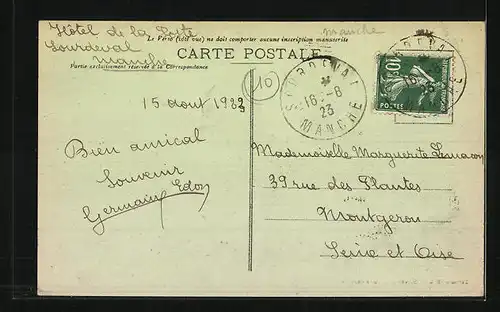 Hôtel de la Poste
Sourdeval
Manche
Le Verso (côté vue) ne doit comporter aucune inscription manuscrite
manche
CARTE POSTALE
Partie exclusivement réservée à la Correspondance
10
15 aout 1923
Bien amical
Souvenir
Germain Edon
SOURDEVAL
16-8
23
MANCHE
10c
POSTES
Mademoiselle Marguerite
39 rue des Plantes
Montgeron
Seine et Oise